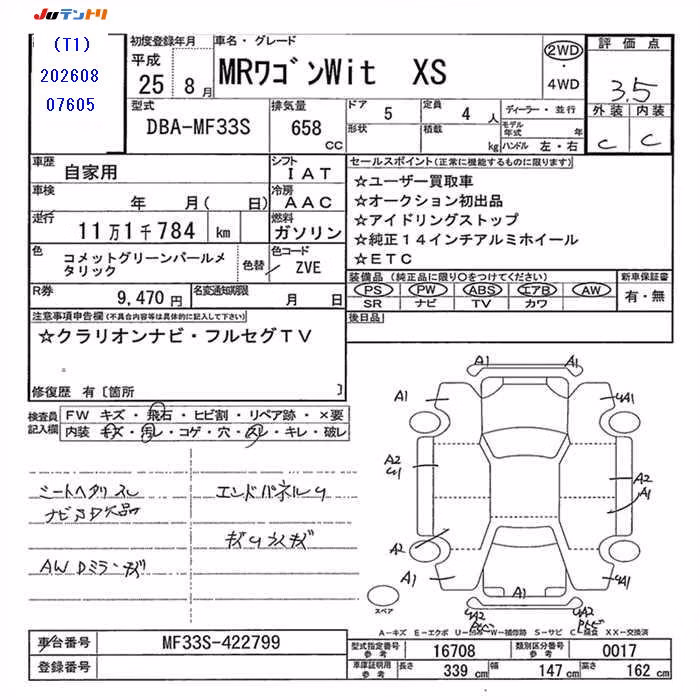 JUテントリ
(T1)
202608
07605
初度登録年月
平成
25年 8月
車名・グレード
MRワゴンWit XS
2WD
・
4WD
評価点
3.5
外装 内装
C C
型式
DBA-MF33S
排気量
658 CC
ドア 5
定員 4 人
形状
積載 kg
ディーラー・並行
モデル年式 年
ハンドル 左・右
車歴 自家用
シフト IAT
車検 年 月( 日)
冷房 AAC
走行 11万1千784 km
燃料 ガソリン
色 コメットグリーンパールメタリック
色替 /
色コード ZVE
R券 9,470円
名変通知期限 月 日
セールスポイント(正常に機能するものに限ります)
☆ユーザー買取車
☆オークション初出品
☆アイドリングストップ
☆純正14インチアルミホイール
☆ETC
装備品(純正品に限り○をつけてください) 新車保証書
PS PW ABS エアB AW 有・無
SR ナビ TV カワ
後日品
注意事項申告欄(不具合内容等は具体的に記入して下さい)
☆クラリオンナビ・フルセグTV
修復歴 有〔箇所 〕
検査員記入欄
FW キズ・飛石・ヒビ割・リペア跡・×要
内装 キズ・汚レ・コゲ・穴・スレ・キレ・破レ
シートヘタリ スレ
エンドパネルU
AW Dミラーキズ
A1 A1
A1 UA1
A2 A2
A1
A2
A1 A1 UA1
UA2 UA2
スペア
A-キズ E-エクボ U-凹み W-補修跡 S-サビ C-腐食 XX-交換済
車台番号 MF33S-422799
登録番号
型式指定番号 参考 16708
類別区分番号 参考 0017
車庫証明用 参考 長さ 339 cm 幅 147 cm 高さ 162 cm